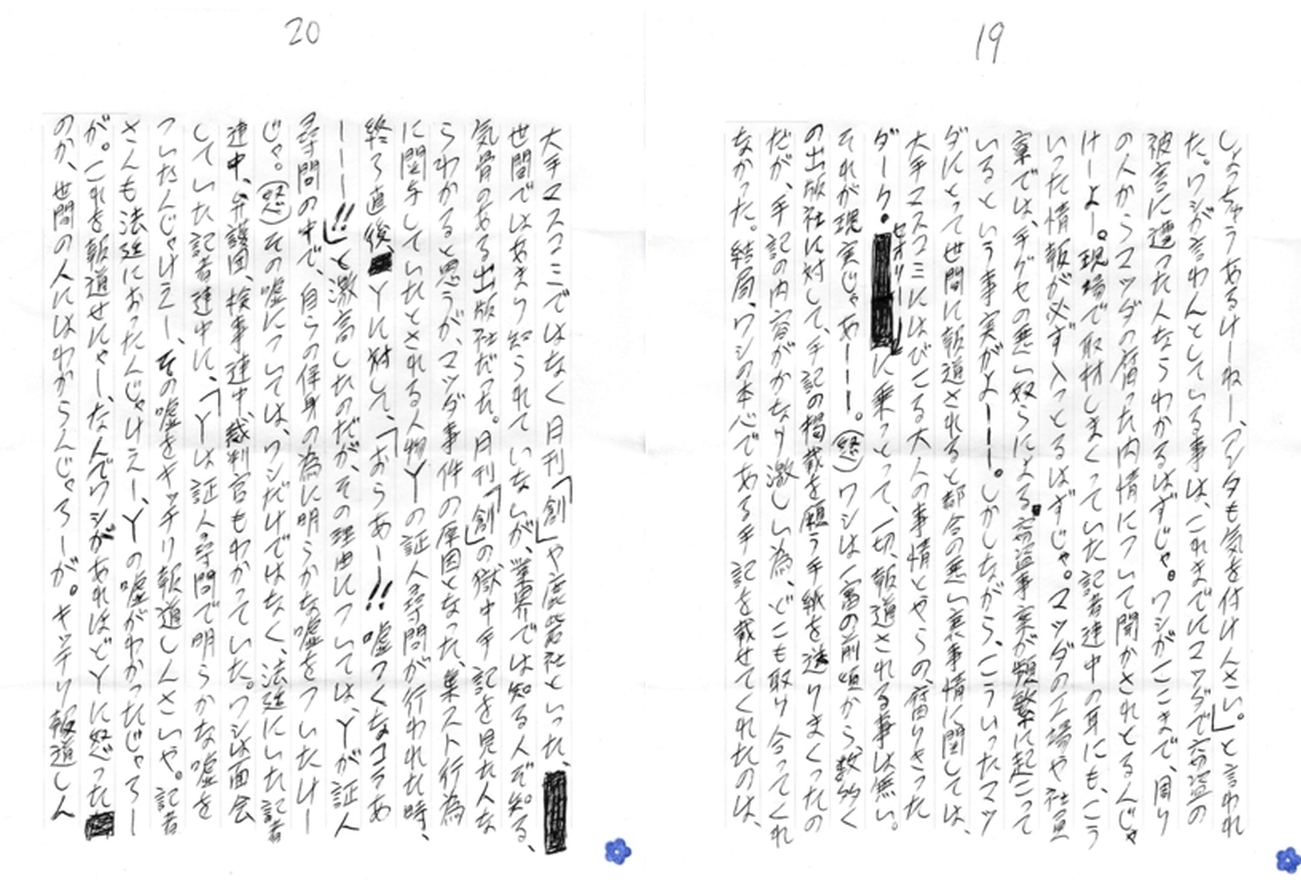 19
しょっちゅうあるけーねー、アンタも気を付けんさい。」と言われ
た。ワシが言わんとしている事は、これまでにマツダで窃盗の
被害に遭った人ならわかるはずじゃ。ワシがここまで、周り
の人からマツダの腐った内情について聞かされとるんじゃ
けーよー。現場で取材しまくっていた記者連中の耳にも、こう
いった情報が必ず入っとるはずじゃ。マツダの工場や社員
寮では、手グセの悪い奴らによる窃盗事案が頻繁に起こって
いるという事実がよーーー。しかしながら、こういったマツ
ダにとって世間に報道されると都合の悪い裏事情に関しては、
大手マスコミにはびこる大人の事情とやらの、腐りきった
ダーク。セオリー」に乗っとって、一切、報道される事は無い。
それが現実じゃあーーー。(怒)ワシは一審の前頃から、数多く
の出版社に対して、手記の掲載を願う手紙を送りまくったの
だが、手記の内容がかなり激しい為、どこも取り合ってくれ
なかった。結局、ワシの本心である手記を載せてくれたのは、
20
大手マスコミではなく月刊「創」や鹿砦社といった、
世間ではあまり知られていないが、業界では知る人ぞ知る、
気骨のある出版社だった。月刊「創」の獄中手記を見た人な
らわかると思うが、マツダ事件の原因となった、集スト行為
に関与していたとされる人物Yの証人尋問が行われた時、
終了直後Yに対して、「おらあー!!嘘つくなコラあ
ーーーー!!」と激高したのだが、その理由については、Yが証人
尋問の中で、自らの保身の為に明らかな嘘をついたけー
じゃ。(怒)その嘘については、ワシだけではなく、法廷にいた記者
連中、弁護団、検事連中、裁判官もわかっていた。ワシは面会
していた記者連中に、「Yは証人の尋問で明らかな嘘を
ついたんじゃけえー、その嘘をキッチリ報道しんさいや。記者
さんも法廷におったんじゃけえー、Yの嘘がわかったじゃろー
が。これを報道せにゃー、なんでワシがあれほどYに怒った
のか、世間の人にはわからんじゃろーが。キッチリ報道しん